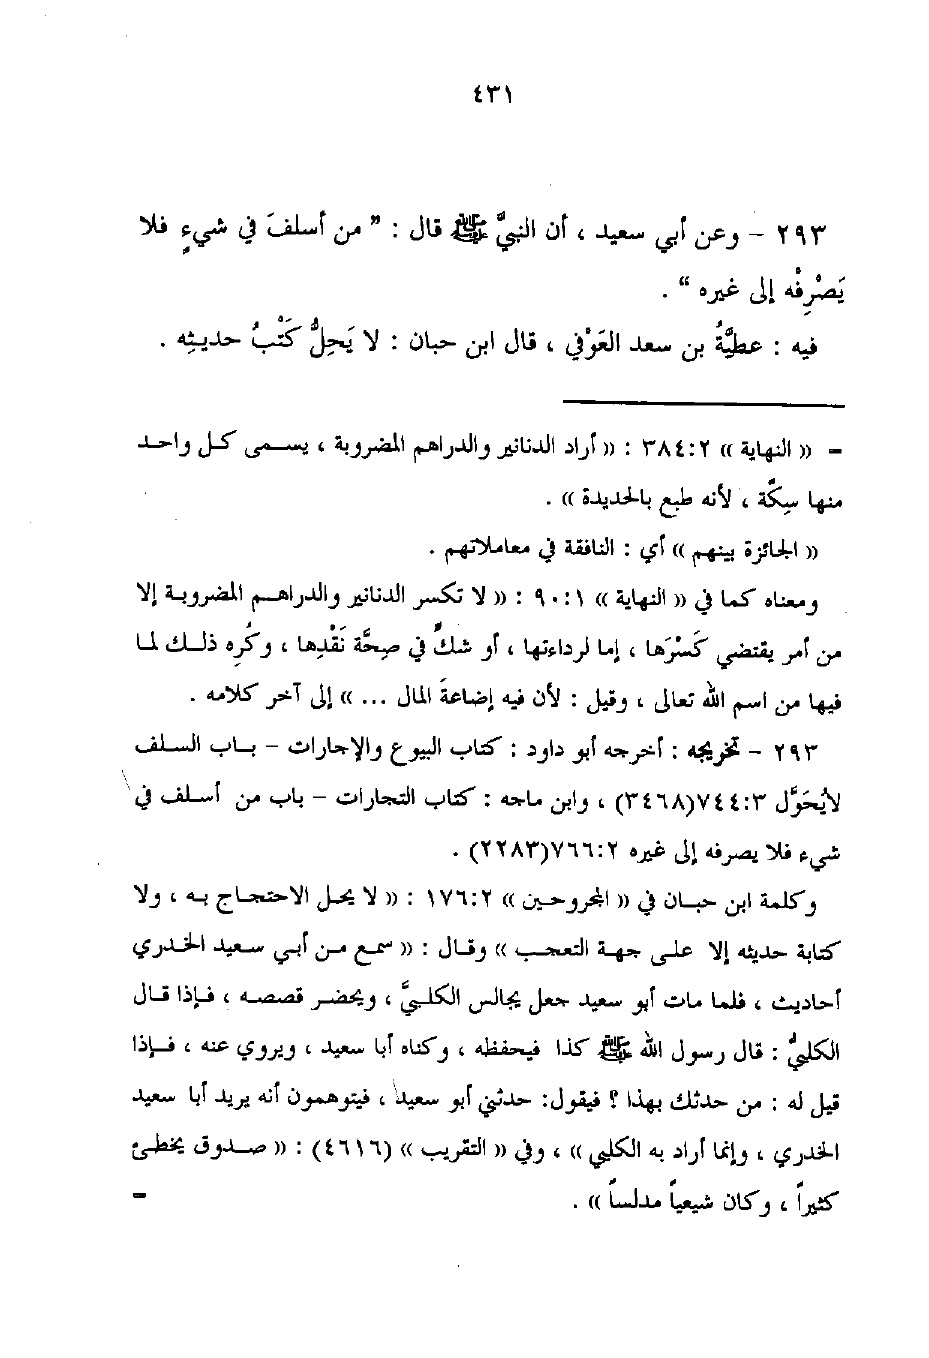 ٤٣١
٢٩٣ – وعن أبي سعيد ، أن النبيَّ ﷺ قال : " من أسلفَ في شيءٍ فلا
يَصْرِفْه إلى غيره " .
فيه : عطيَّةُ بن سعد العَوْفي ، قال ابن حبان : لا يَحِلُّ كَتْبُ حديثِه .
= (( النهاية )) ٣٨٤:٢ : (( أراد الدنانير والدراهم المضروبة ، يسمى كل واحد
منها سِكَّة ، لأنه طبع بالحديدة )) .
(( الجائزة بينهم )) أي : النافقة في معاملاتهم .
ومعناه كما في (( النهاية )) ٩٠:١ : (( لا تكسر الدنانير والدراهم المضروبة إلا
من أمر يقتضي كَسْرَها ، إما لرداءتها ، أو شكٍّ في صِحَّة نَقْدِها ، وكُره ذلك لما
فيها من اسم الله تعالى ، وقيل : لأن فيه إضاعةَ المال ... )) إلى آخر كلامه .
٢٩٣ – تخريجه : أخرجه أبو داود : كتاب البيوع والإجارات – باب السلف
لايُحَوَّل ٧٤٤:٣(٣٤٦٨) ، وابن ماجه : كتاب التجارات – باب من أسلف في
شيء فلا يصرفه إلى غيره ٧٦٦:٢(٢٢٨٣) .
وكلمة ابن حبان في (( المجروحين )) ١٧٦:٢ : (( لا يحل الاحتجاج به ، ولا
كتابة حديثه إلا على جهة التعجب )) وقال : (( سمع من أبي سعيد الخدري
أحاديث ، فلما مات أبو سعيد جعل يجالس الكلبيَّ ، ويحضر قصصه ، فإذا قال
الكلبيُّ : قال رسول الله ﷺ كذا فيحفظه ، وكناه أبا سعيد ، ويروي عنه ، فإذا
قيل له : من حدثك بهذا ؟ فيقول: حدثني أبو سعيد ، فيتوهمون أنه يريد أبا سعيد
الخدري ، وإنما أراد به الكلبي )) ، وفي (( التقريب )) (٤٦١٦) : (( صدوق يخطئ
كثيراً ، وكان شيعياً مدلساً )) . =